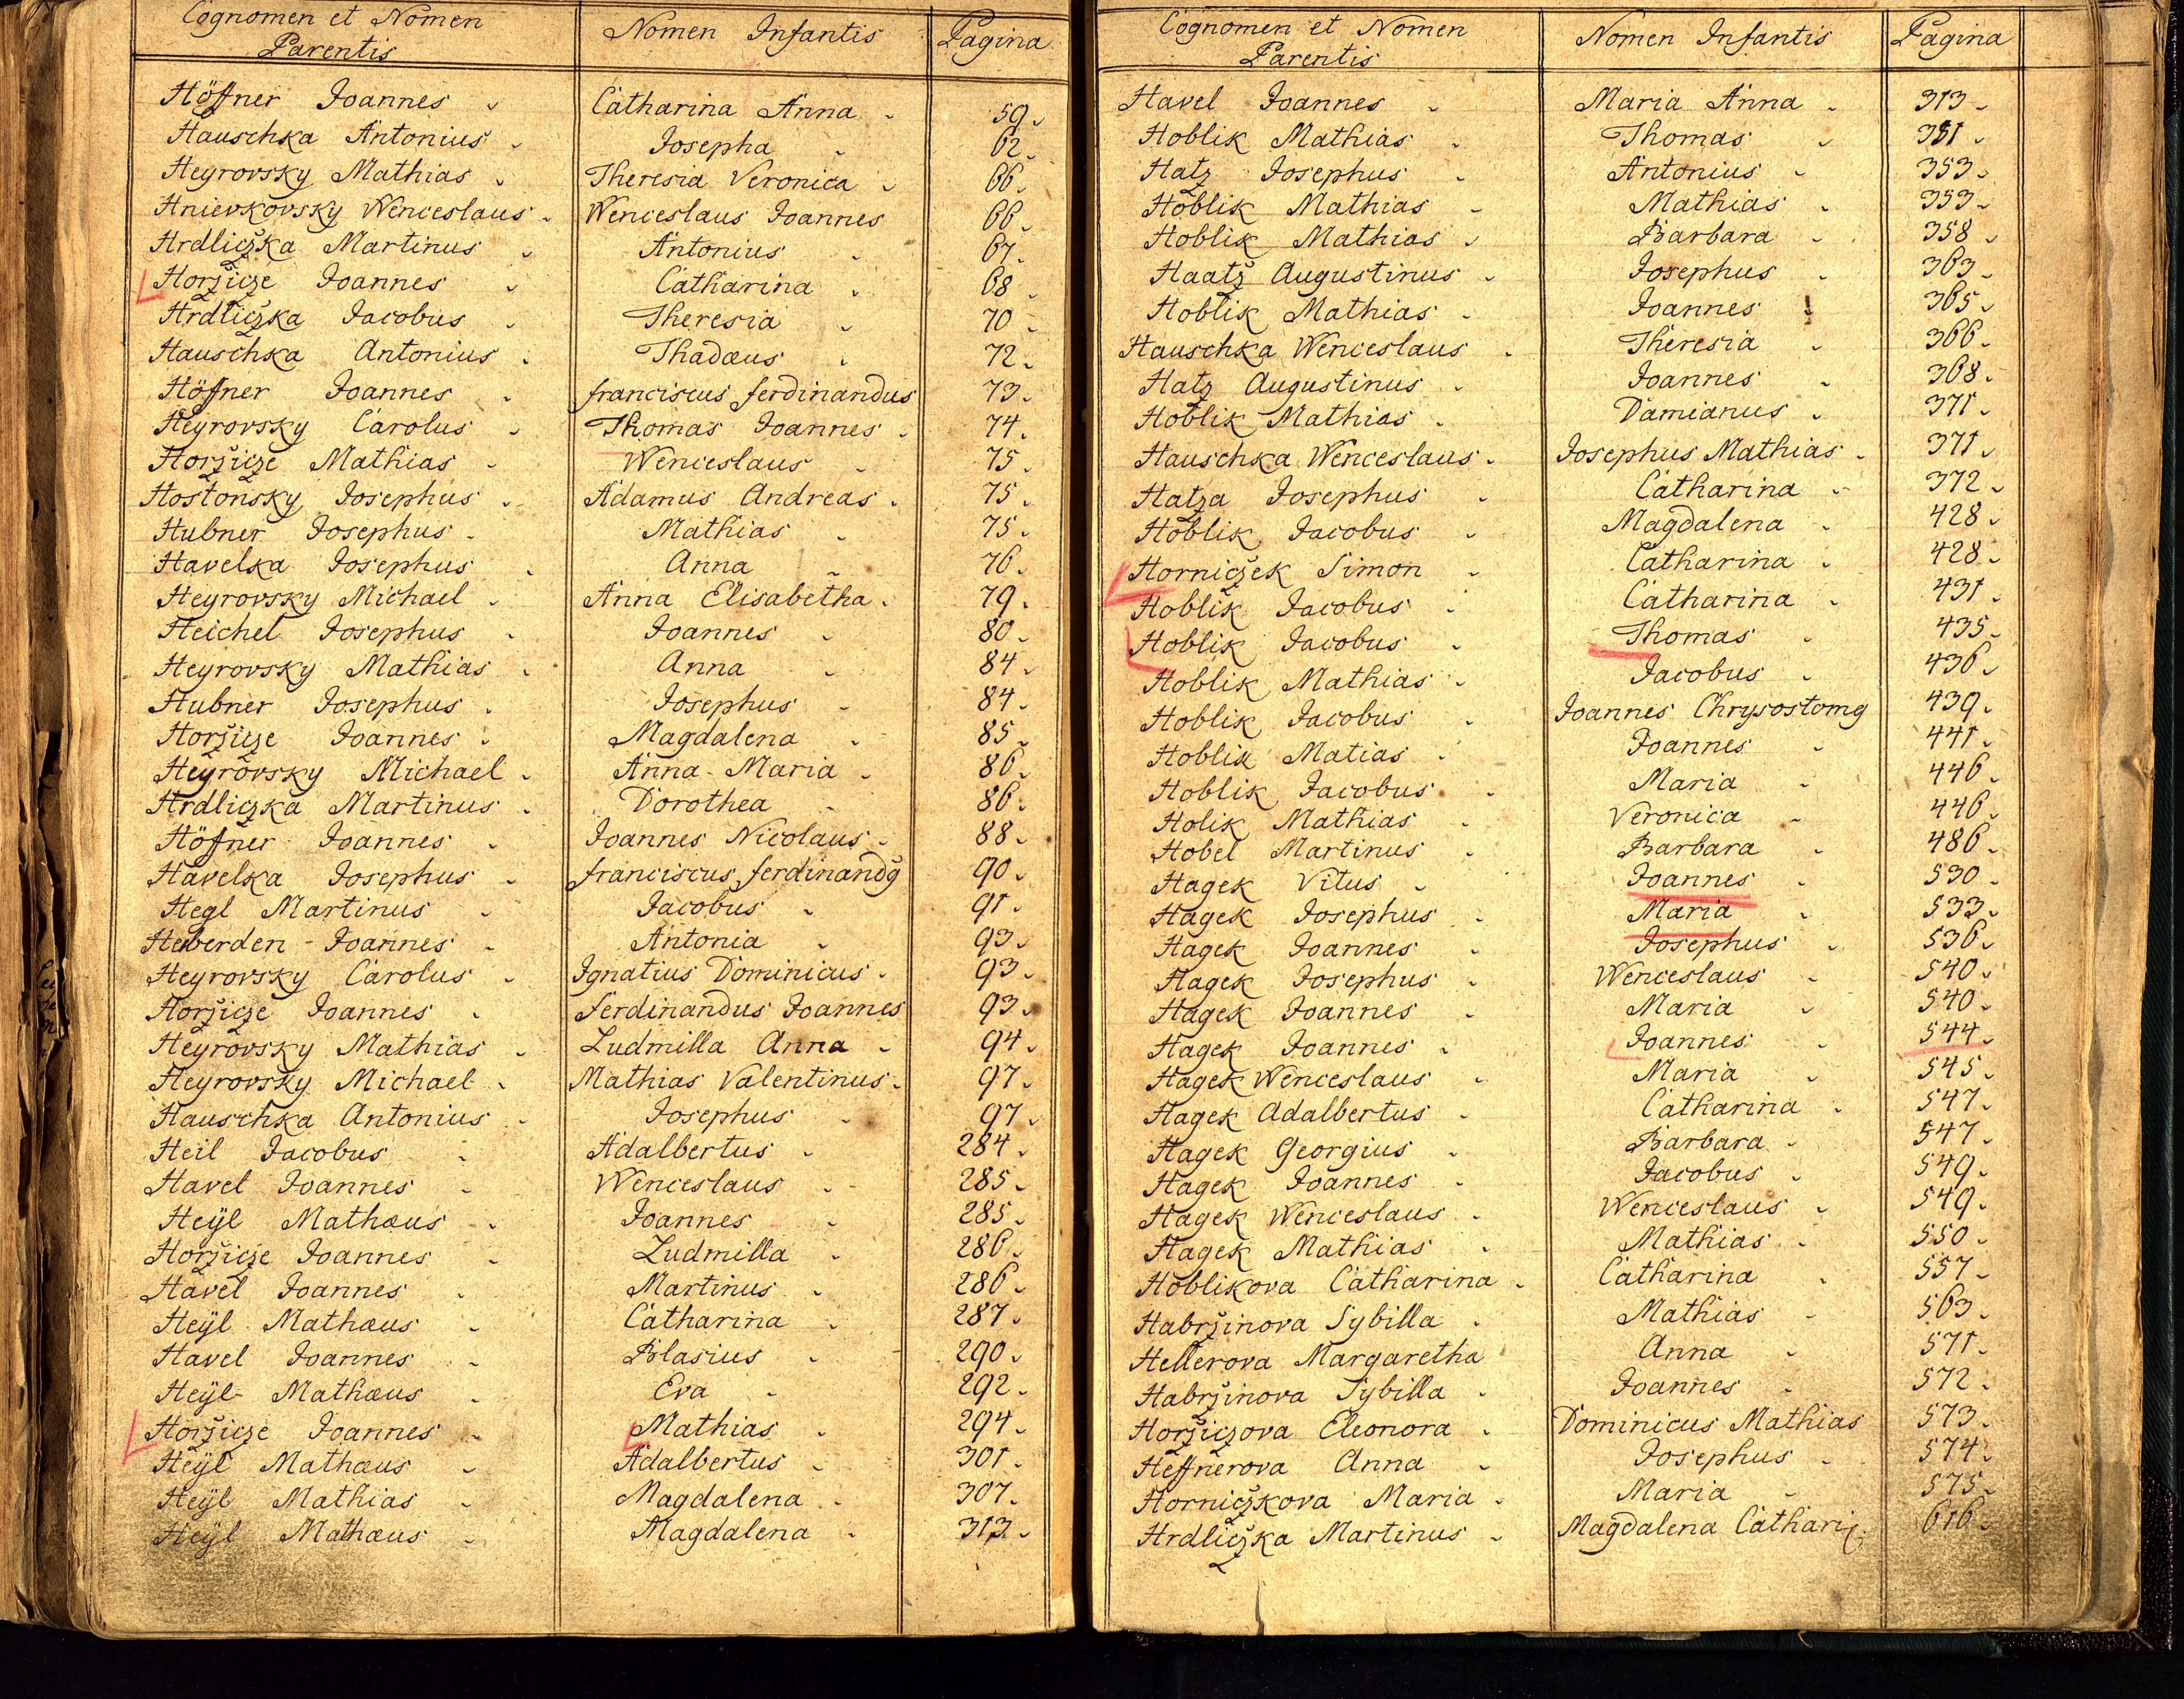 Cognomen et Nomen Parentis Nomen Infantis Pagina
Höffner Joannes Catharina Anna 59
Hauschka Antonius Josepha 62
Heyrovsky Mathias Theresia Veronica 66
Hnievkovsky Wenceslaus Wenceslaus Joannes 66
Hrdliczka Martinus Antonius 67
Horžicze Joannes Catharina 68
Hrdliczka Jacobus Theresia 70
Hauschka Antonius Thadæus 72
Höffner Joannes franciscus ferdinandus 73
Heyrovsky Carolus Thomas Joannes 74
Horžicze Mathias Wenceslaus 75
Hostonsky Josephus Adamus Andreas 75
Hubner Josephus Mathias 75
Havelka Josephus Anna 76
Heyrovsky Michael Anna Elisabetha 79
Heichel Josephus Joannes 80
Heyrovsky Mathias Anna 84
Hubner Josephus Josephus 84
Horžicze Joannes Magdalena 85
Heyrovsky Michael Anna Maria 86
Hrdliczka Martinus Dorothea 86
Höffner Joannes Joannes Nicolaus 88
Havelka Josephus franciscus ferdinandg 90
Hegl Martinus Jacobus 91
Heberden Joannes Antonia 93
Heyrovsky Carolus Ignatius Dominicus 93
Horžicze Joannes Ferdinandus Joannes 93
Heyrovsky Mathias Ludmilla Anna 94
Heyrovsky Michael Mathias Valentinus 97
Hauschka Antonius Josephus 97
Heil Jacobus Adalbertus 284
Havel Joannes Wenceslaus 285
Heÿl Mathæus Joannes 285
Horžicze Joannes Ludmilla 286
Havel Joannes Martinus 286
Heÿl Mathæus Catharina 287
Havel Joannes Blasius 290
Heÿl Mathæus Eva 292
Horžicze Joannes Mathias 294
Heÿl Mathæus Adalbertus 301
Heÿl Mathias Magdalena 307
Heÿl Mathæus Magdalena 313
Cognomen et Nomen Parentis Nomen Infantis Pagina
Havel Joannes Maria Anna 313
Hoblik Mathias Thomas 351
Hatz Josephus Antonius 353
Hoblik Mathias Mathias 353
Hoblik Mathias Barbara 358
Haatz Augustinus Josephus 363
Hoblik Mathias Joannes 365
Hauschka Wenceslaus Theresia 366
Hatz Augustinus Joannes 368
Hoblik Mathias Damianus 371
Hauschka Wenceslaus Josephus Mathias 371
Hatza Josephus Catharina 372
Hoblik Jacobus Magdalena 428
Horniczek Simon Catharina 428
Hoblik Jacobus Catharina 431
Hoblik Jacobus Thomas 435
Hoblik Mathias Jacobus 436
Hoblik Jacobus Joannes Chrysostomg 439
Hoblik Matias Joannes 441
Hoblik Jacobus Maria 446
Holik Mathias Veronica 446
Hobel Martinus Barbara 486
Hagek Vitus Joannes 530
Hagek Josephus Maria 533
Hagek Joannes Josephus 536
Hagek Josephus Wenceslaus 540
Hagek Joannes Maria 540
Hagek Joannes Joannes 544
Hagek Wenceslaus Maria 545
Hagek Adalbertus Catharina 547
Hagek Georgius Barbara 547
Hagek Joannes Jacobus 549
Hagek Wenceslaus Wenceslaus 549
Hagek Mathias Mathias 550
Hoblikova Catharina Catharina 557
Habržinova Sybilla Mathias 563
Hellerova Margaretha Anna 571
Habržinova Sybilla Joannes 572
Horžiczova Eleonora Dominicus Mathias 573
Heffnerova Anna Josephus 574
Horniczkova Maria Maria 575
Hrdliczka Martinus Magdalena Cathari 616